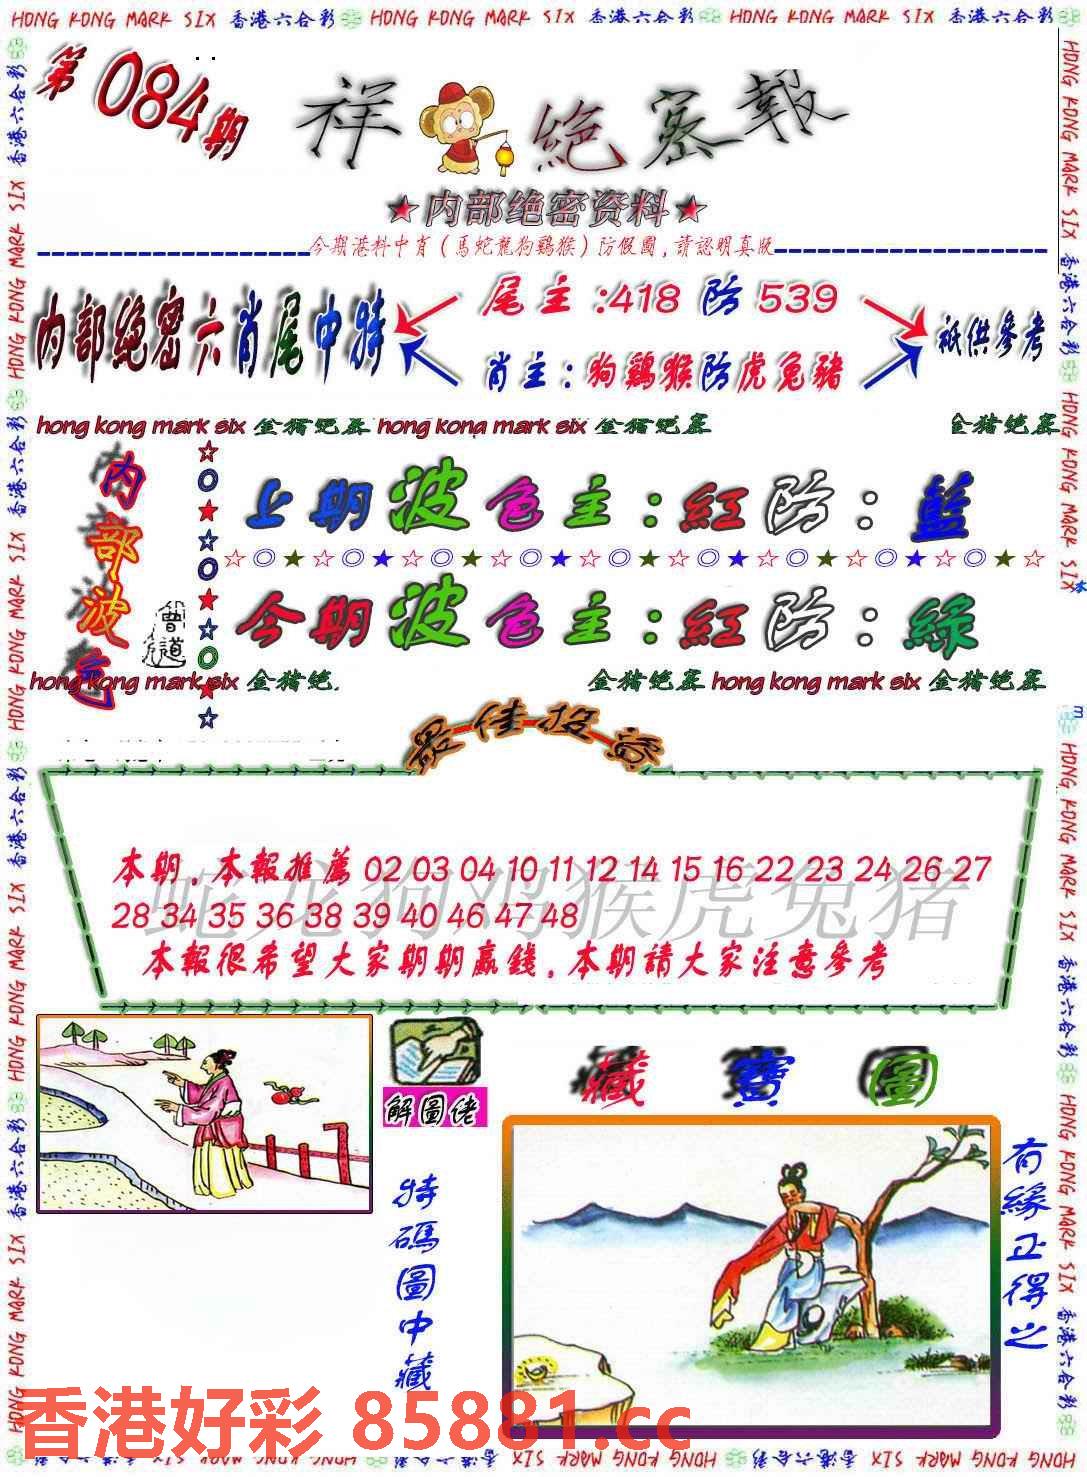 HONG KONG MARK SIX 香港六合彩 HONG KONG MARK SIX 香港六合彩 HONG KONG MARK SIX 香港六合彩
第084期
祥 絕密報
★内部绝密资料★
今期港料中肖（馬蛇龍狗鷄猴）防假圖，請認明真版
内部绝密六肖尾中特
尾主:418防539
肖主:狗鷄猴防虎兔豬
祗供參考
hong kong mark six 金猪绝密 hong kong mark six 金猪绝密
金猪绝密
内部波色
上期波色主:紅防:藍
曾道
今期波色主:紅防:綠
hong kong mark six 金猪绝
金猪绝密 hong kong mark six 金猪绝密
最佳投
蛇龙狗鸡猴虎兔猪
本期,本報推薦 02 03 04 10 11 12 14 15 16 22 23 24 26 27
28 34 35 36 38 39 40 46 47 48
本報很希望大家期期贏錢,本期請大家注意參考
解圖佬
藏寶圖
特碼圖中藏
有緣正得之
香港好彩 85881.cc